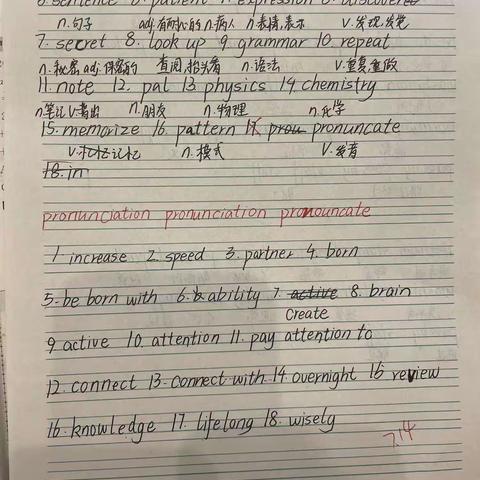 6. sentence 6. patient 7. expression 8. discovered
n.句子 adj.有耐心的 n.病人 n.表情,表示 v.发现,发觉
7. secret 8. look up 9 grammar 10. repeat
n.秘密 adj.保密的 查阅,抬头看 n.语法 v.重复,重做
11. note 12. pal 13 physics 14 chemistry
n笔记 v.着出 n.朋友 n.物理 n.化学
15. memorize 16. pattern 17. prou pronuncate
v.记忆 n.模式 v.发音
18. in
pronunciation pronunciation pronouncate
1 increase 2. speed 3. partner 4. born
5. be born with 6. ability 7. active 8. brain
Create
9 active 10. attention 11. pay attention to
12. connect 13. connect with 14. overnight 15 review
16. knowledge 17. lifelong 18. wisely
7.14